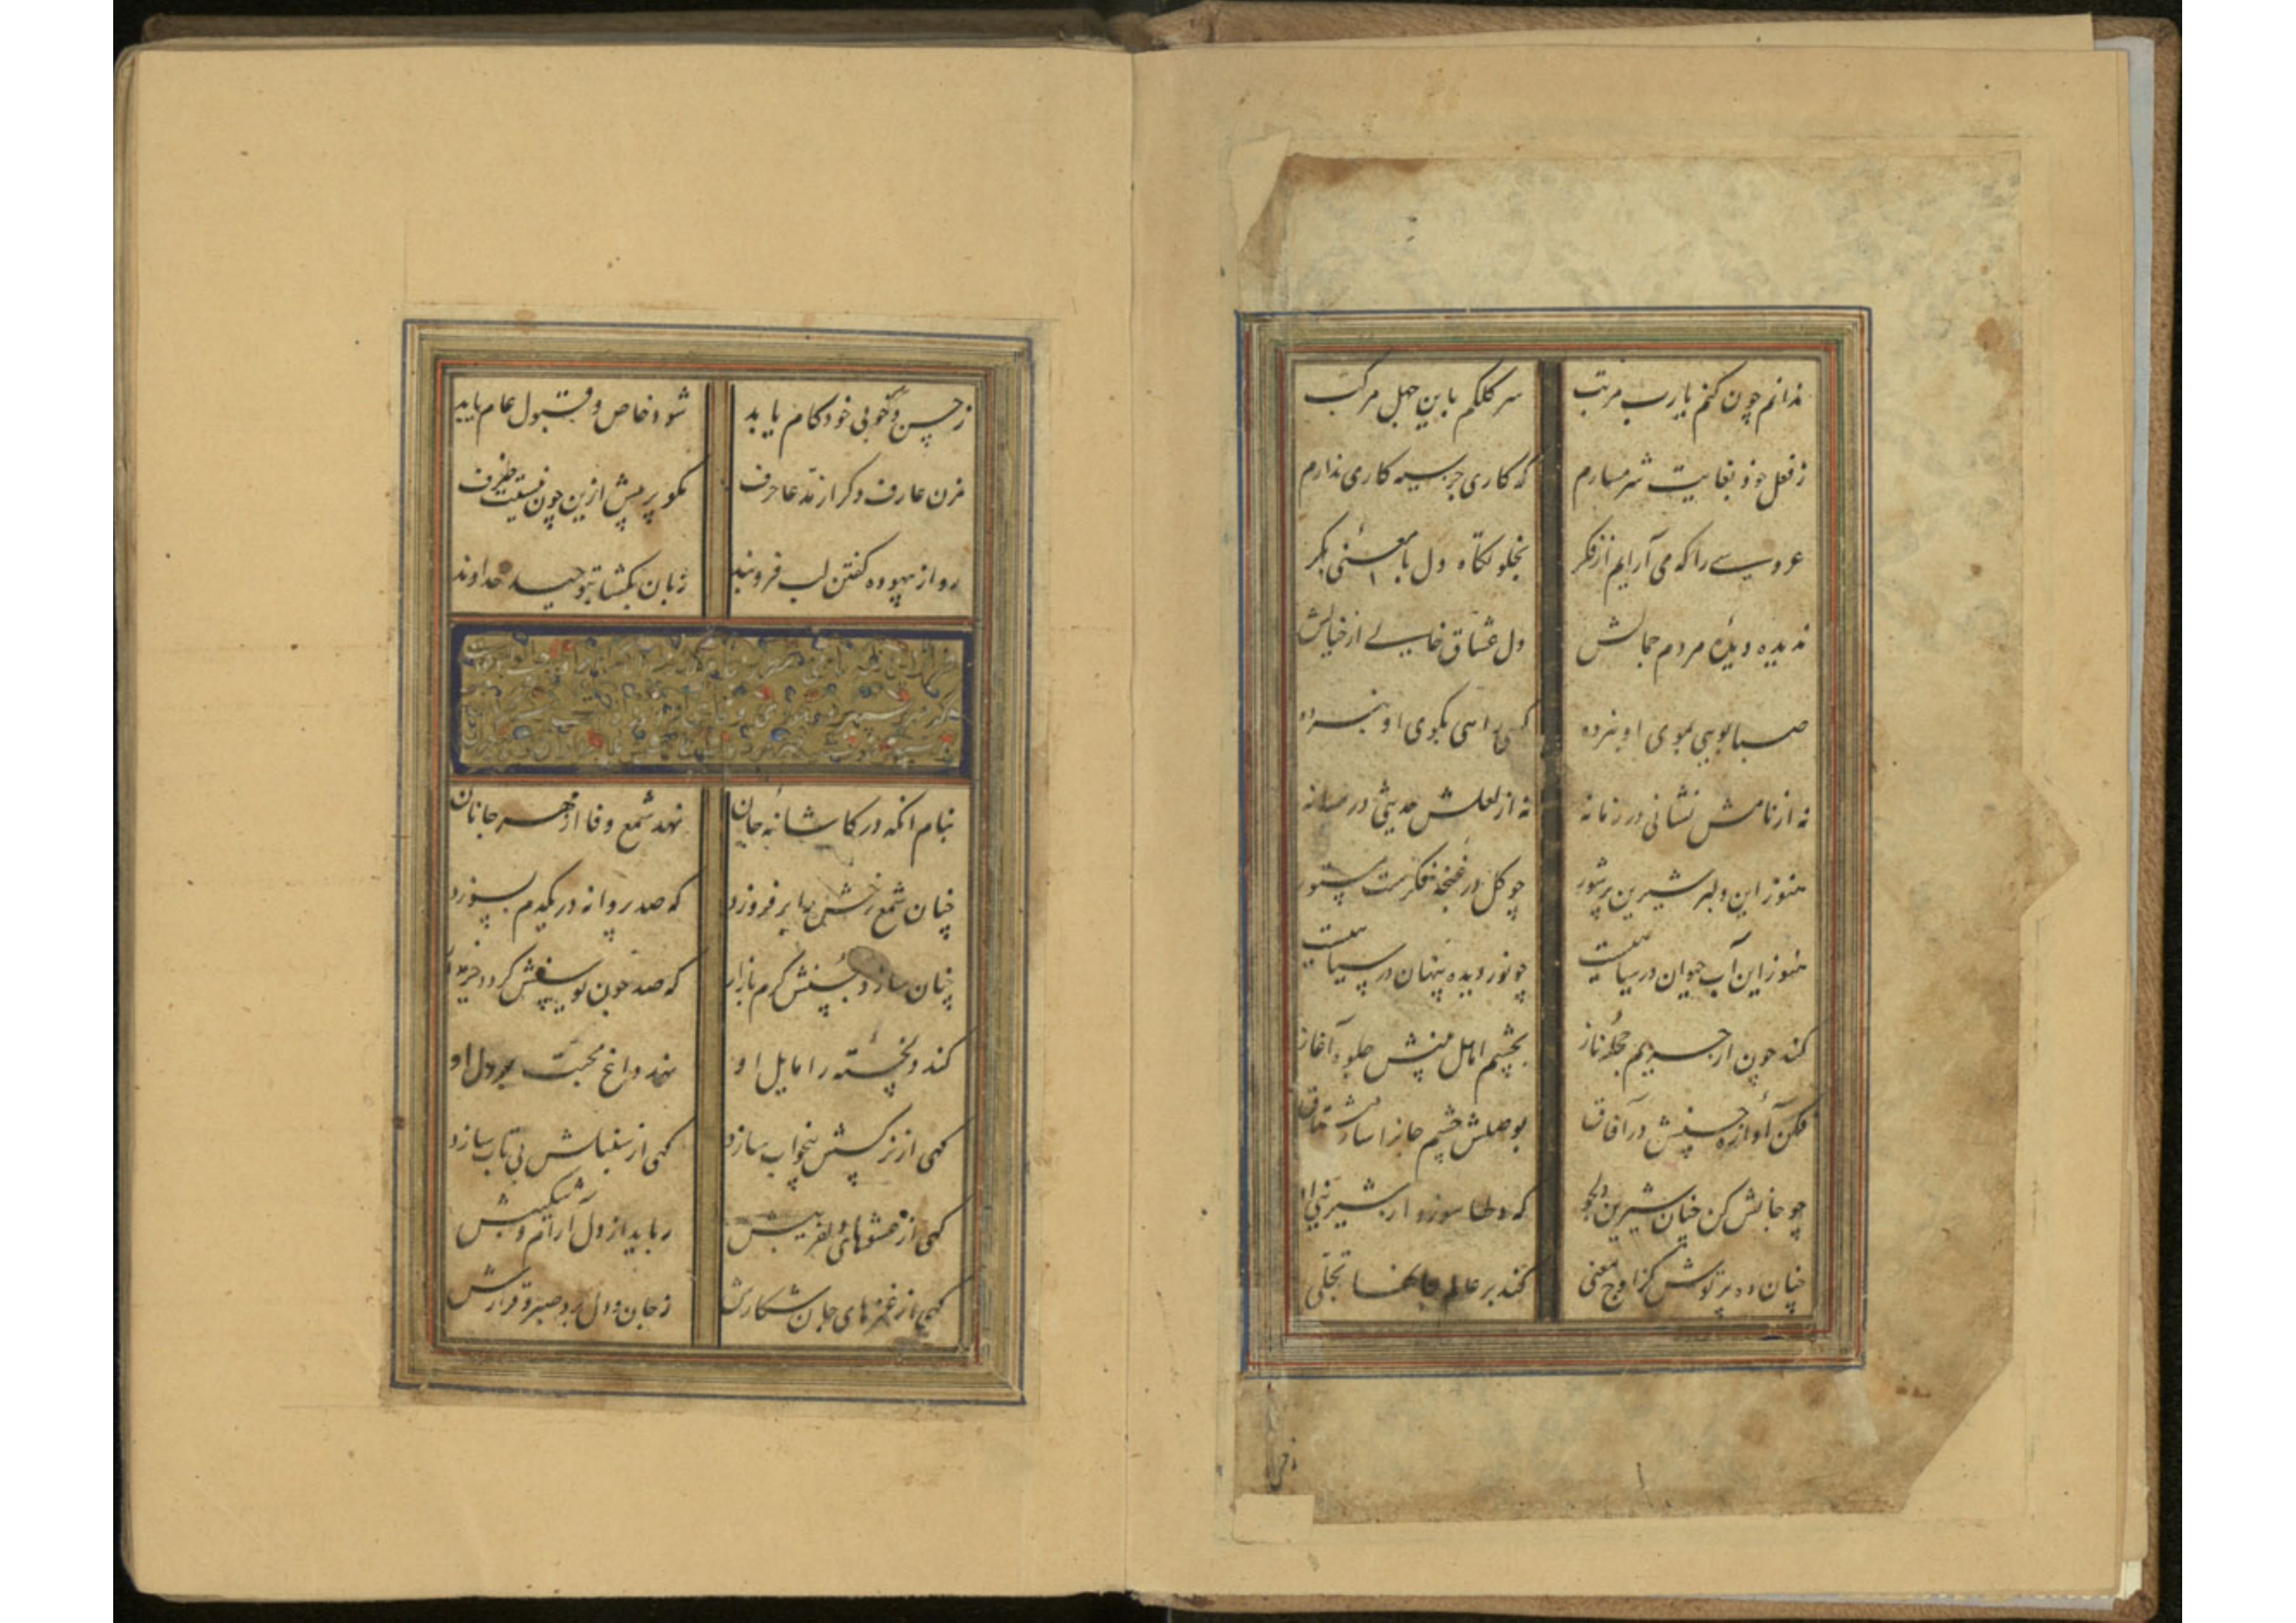 ندانم چون کنم یارب مرتب سر کلکم باین جهل مرکب
ز فعل خود بغایت شرمسارم که کاری جز سیه کاری ندارم
عروسی را که می آرایم از فکر بخلوتگاه دل با معنئ بکر
ندیده دیدهٔ مردم جمالش دل عشاق خالی از خیالش
صبا بویی بموی او نبرده کسی راهی بکوی او نبرده
نه از نامش نشانی در زمانه نه از لعلش حدیثی در میانه
هنوز این دلبر شیرین پرشور چو گل در غنچهٔ فکرست مستور
هنوز این آب حیوان در سیاهیست چو نور دیده پنهان در سیاهیست
کند چون از حریم حجلهٔ ناز بچشم اهل بینش جلوه آغاز
فکن آوازهٔ حسنش در آفاق بوصلش چشم جانرا ساز مشتاق
چو جانش کن چنان شیرین و دلجو که دلها سوزد از شیرینی او
چنان ده پرتوش کز اوج معنی کند بر عالم جانها تجلی
ز حسن و خوبی خود کام یابد شود خاص و قبول عام یابد
مزن عارف دگر از مدعا حرف مگو پر بیش ازین چون نیست ظرف
رو از بیهوده گفتن لب فروبند زبان بگشا بتوحید خداوند
بنام آنکه در کاشانهٔ جان نهد شمع وفا از مهر جانان
چنان شمع رخش را برفروزد که صد پروانه در یکدم بسوزد
چنان سازد بحسنش گرم بازار که صد چون یوسفش گردد خریدار
کند دلخسته را مایل او نهد داغ محبت بر دل او
گهی از نرگسش بیخواب سازد گهی از سنبلش بی تاب سازد
گهی از عشوهای دلفریبش رباید از دل آرام و شکیبش
گهی از غمزهای جان شکارش ز جان و دل برد صبر و قرارش